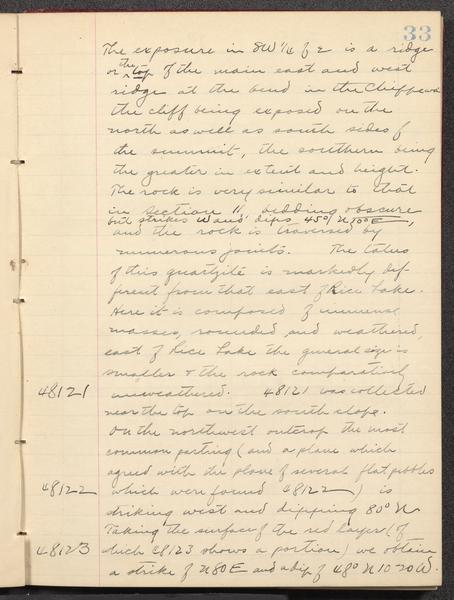 33
The exposure in SW 1/4 of 2 is a ridge
on the top of the main east and west
ridge at the bend in the Chippewa
the cliff being exposed on the
north as well as south sides of
the summit, the southern being
the greater in extent and height.
The rock is very similar to that
in section 11, bedding obscure
but strikes W and dips 45° N
and the rock is traversed by
numerous joints. The talus
of this quartzite is markedly dif-
ferent from that east of Rice Lake.
Here it is composed of immense
masses, rounded and weathered,
east of Rice Lake the general size is
smaller & the rock comparatively
48121 unweathered. 48121 was collected
near the top on the south slope.
On the northwest outcrop the most
common parting (and a plane which
agreed with the plane of several flat pebbles
48122 which were found 48122) is
striking west and dipping 80° N.
Taking the surface of the red layers (of
48123 which 48123 shows a portion) we obtain
a strike of N 80 E and a dip of 48° N 10-20 W.